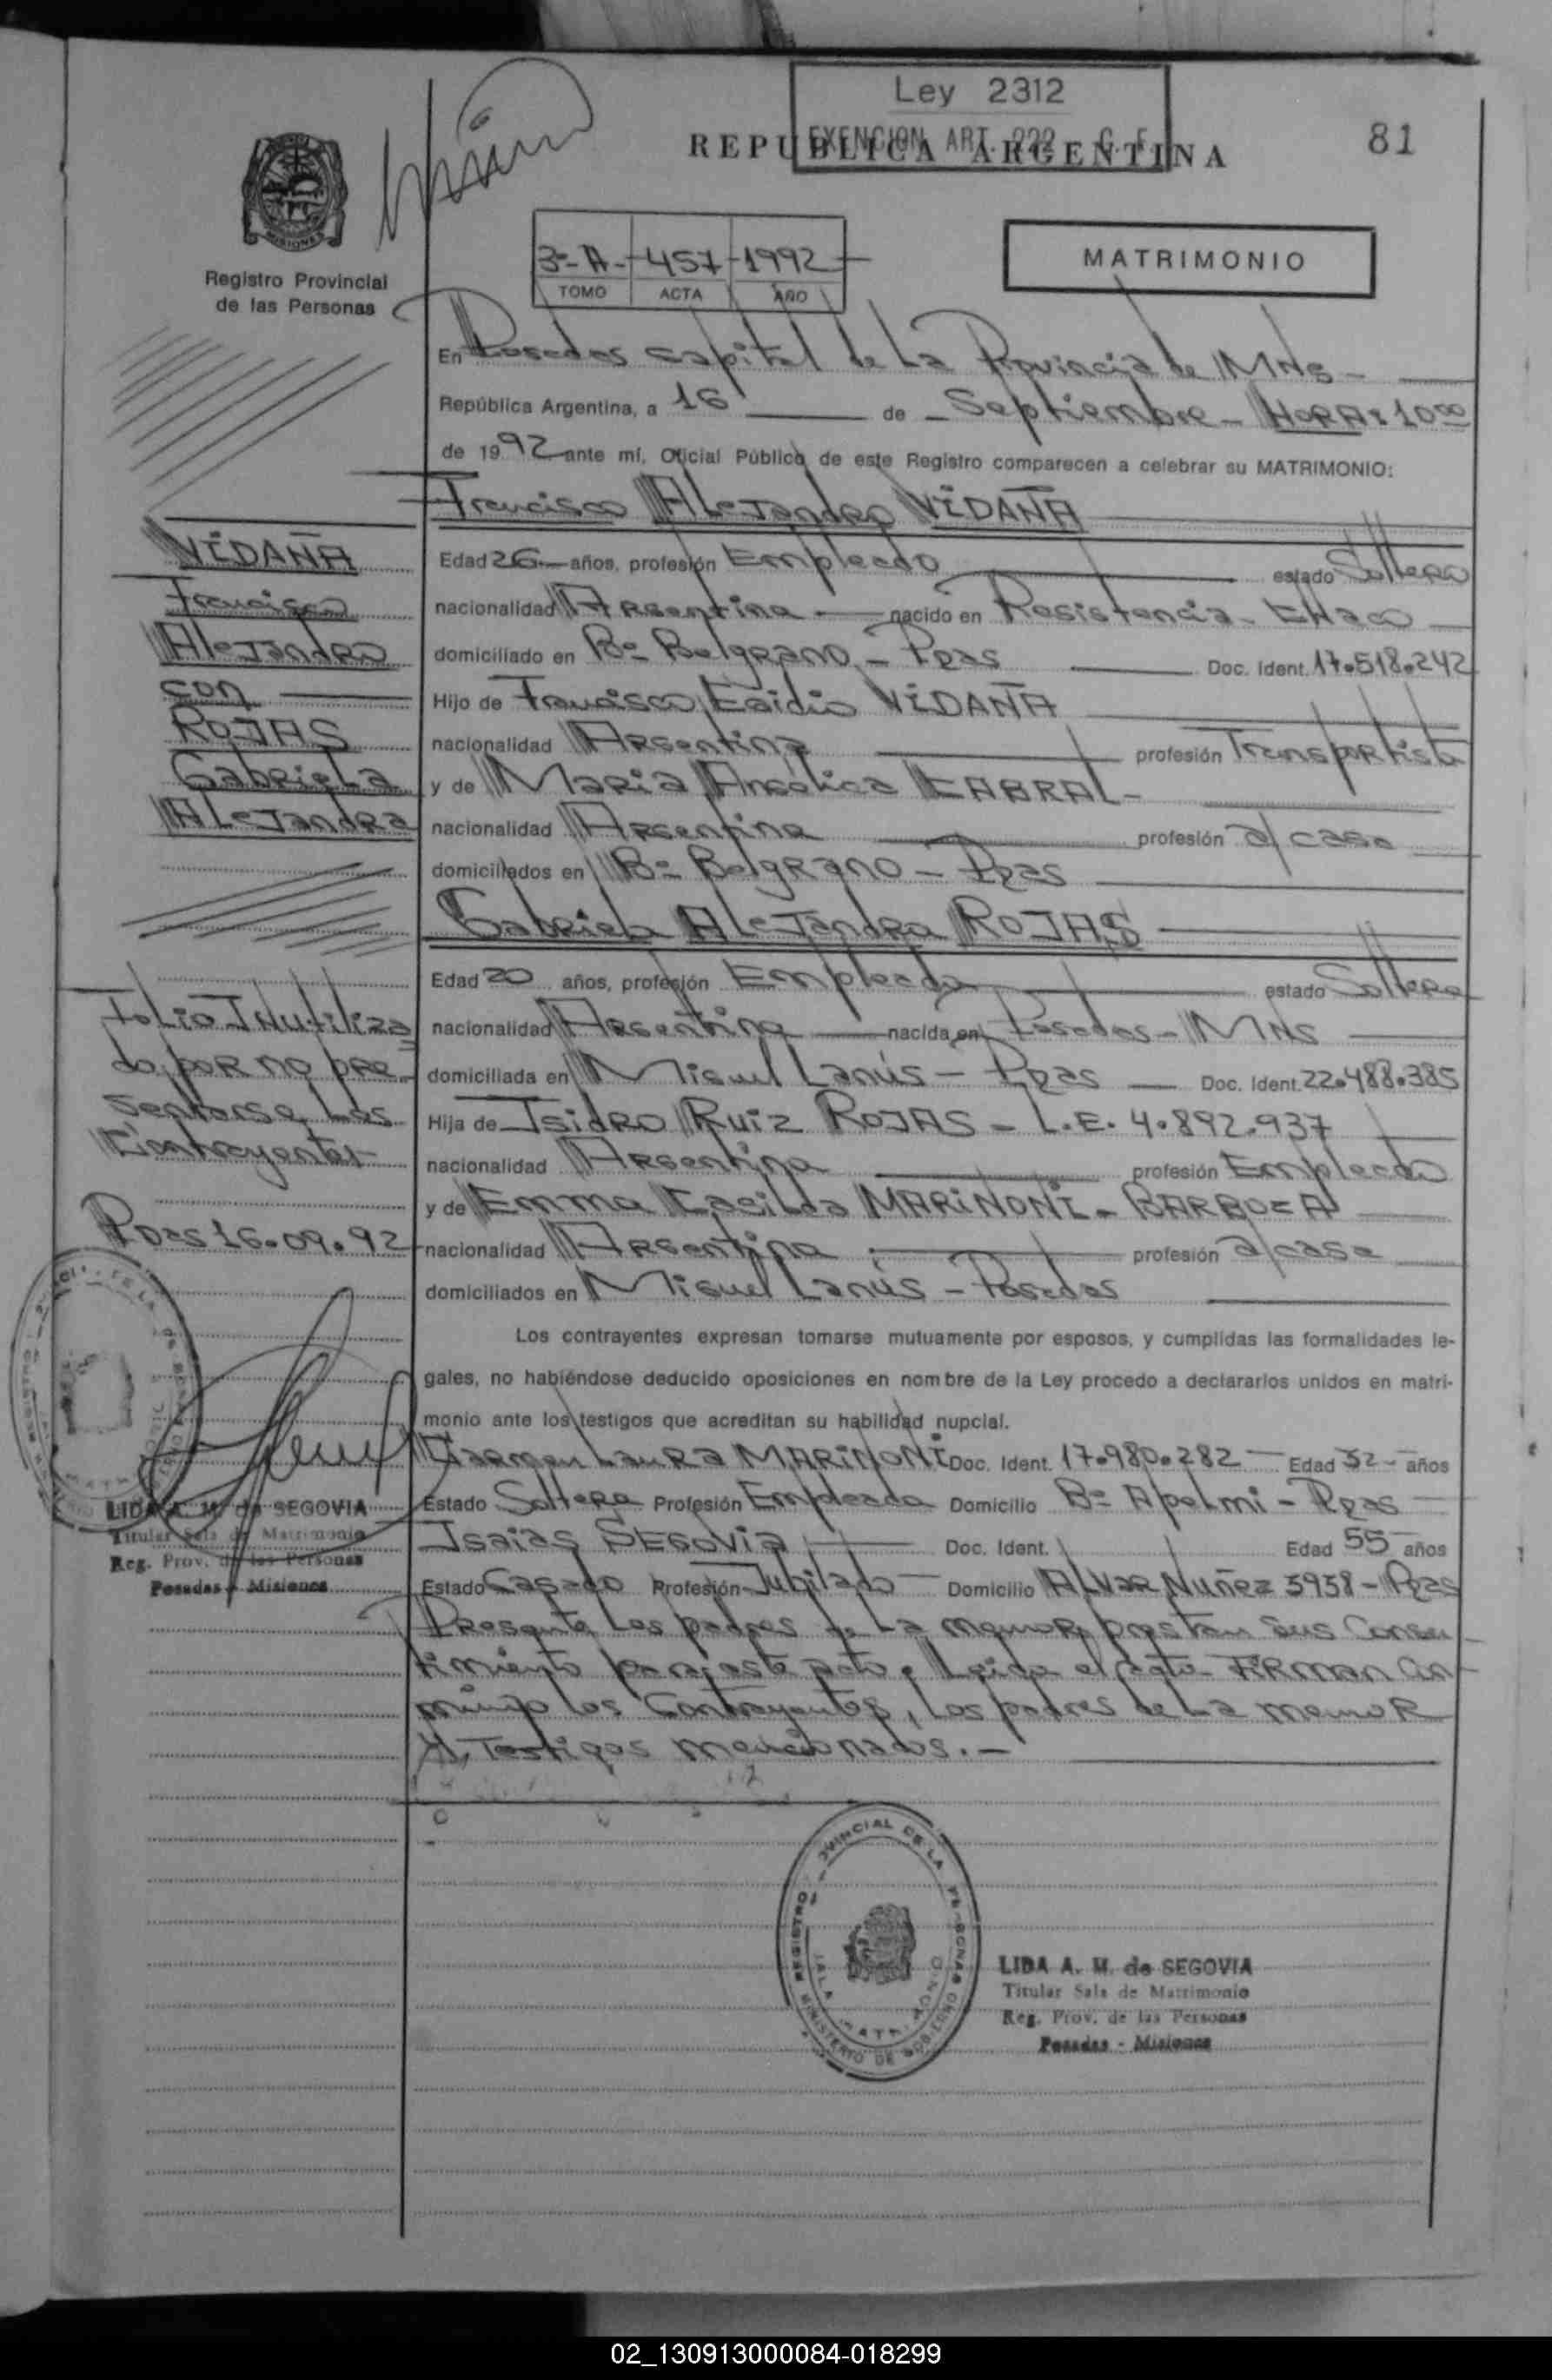 Ley 2312
EXENCION ART. 222 C. F.
REPUBLICA ARGENTINA
81
MISIONES
Registro Provincial
de las Personas
3º-A- 457 1992
TOMO ACTA AÑO
MATRIMONIO
En Posadas capital de La Provincia de Mnes-
República Argentina, a 16 de - Septiembre - HORA: 10⁰⁰
de 1992 ante mí, Oficial Público de este Registro comparecen a celebrar su MATRIMONIO:
Francisco Alejandro VIDAÑA
Edad 26 años, profesión Empleado estado Soltero
nacionalidad Argentina nacido en Resistencia - Chaco
domiciliado en Bº Belgrano - Pdas Doc. Ident. 17.518.242
Hijo de Francisco Egidio VIDAÑA
nacionalidad Argentina profesión Transportista
y de Maria Angélica CABRAL-
nacionalidad Argentina profesión a/casa
domiciliados en Bº Belgrano - Pdas
Gabriela Alejandra ROJAS
Edad 20 años, profesión Empleada estado Soltera
nacionalidad Argentina nacida en Posadas - Mns
domiciliada en Miguel Lanús - Pdas Doc. Ident. 22.488.385
Hija de Isidro Ruiz ROJAS - L.E. 4.892.937
nacionalidad Argentina profesión Empleado
y de Emma Casilda MARINONI - BARBOZA
nacionalidad Argentina profesión a/casa
domiciliados en Miguel Lanús - Posadas
Los contrayentes expresan tomarse mutuamente por esposos, y cumplidas las formalidades le-
gales, no habiéndose deducido oposiciones en nombre de la Ley procedo a declararlos unidos en matri-
monio ante los testigos que acreditan su habilidad nupcial.
Carmen Laura MARINONI Doc. Ident. 17.980.282 Edad 32- años
Estado Soltera Profesión Empleada Domicilio Bº - Pdas
Isaias SEGOVIA Doc. Ident. Edad 55 años
Estado Casado Profesión Jubilado Domicilio ALVAR Nuñez 5958 - Pdas
Presente Los padres de La menor, prestan sus Consen
timiento para este acto. Leida el acta FIRMAN con
migo los Contrayentes, Los padres de La menor
y Testigos mencionados.-
VIDAÑA
Francisco
Alejandro
con
ROJAS
Gabriela
Alejandra
Folio Inutiliza
do por no pre-
sentarse Los
Contrayentes
Pdas 16.09.92
LIDA A. M. de SEGOVIA
Titular Sala de Matrimonio
Reg. Prov. de las Personas
Posadas - Misiones
REGISTRO PROVINCIAL DE LAS PERSONAS
MINISTERIO DE GOBIERNO
LIDA A. M. de SEGOVIA
Titular Sala de Matrimonio
Reg. Prov. de las Personas
Posadas - Misiones
02_130913000084-018299